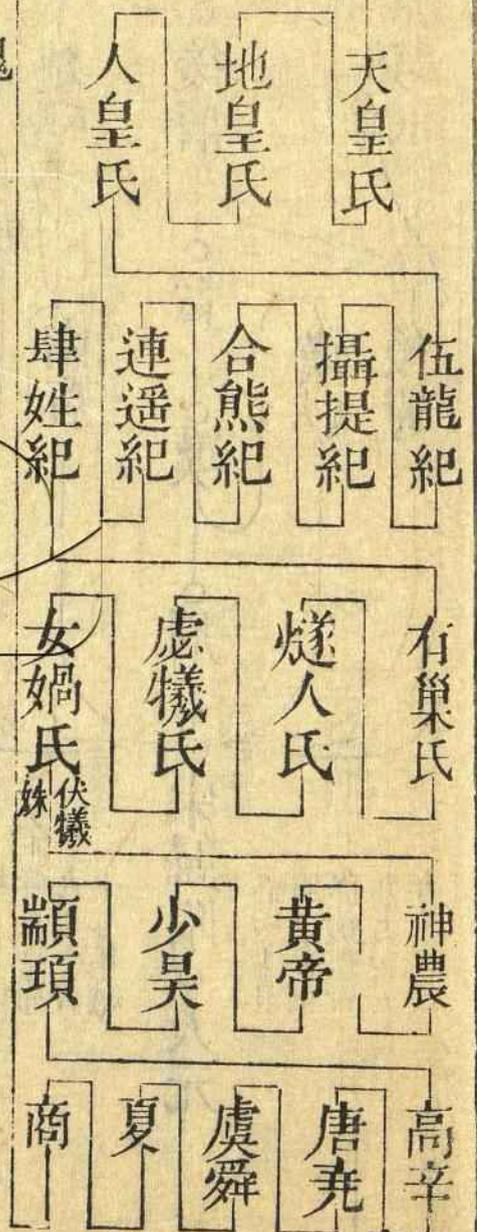 天皇氏
地皇氏
人皇氏
伍龍紀
攝提紀
合熊紀
連逓紀
肆姓紀
有巢氏
燧人氏
虙犧氏
女媧氏 伏犧妹
神農
黄帝
少昊
顓頊
高辛
唐堯
虞舜
夏
商